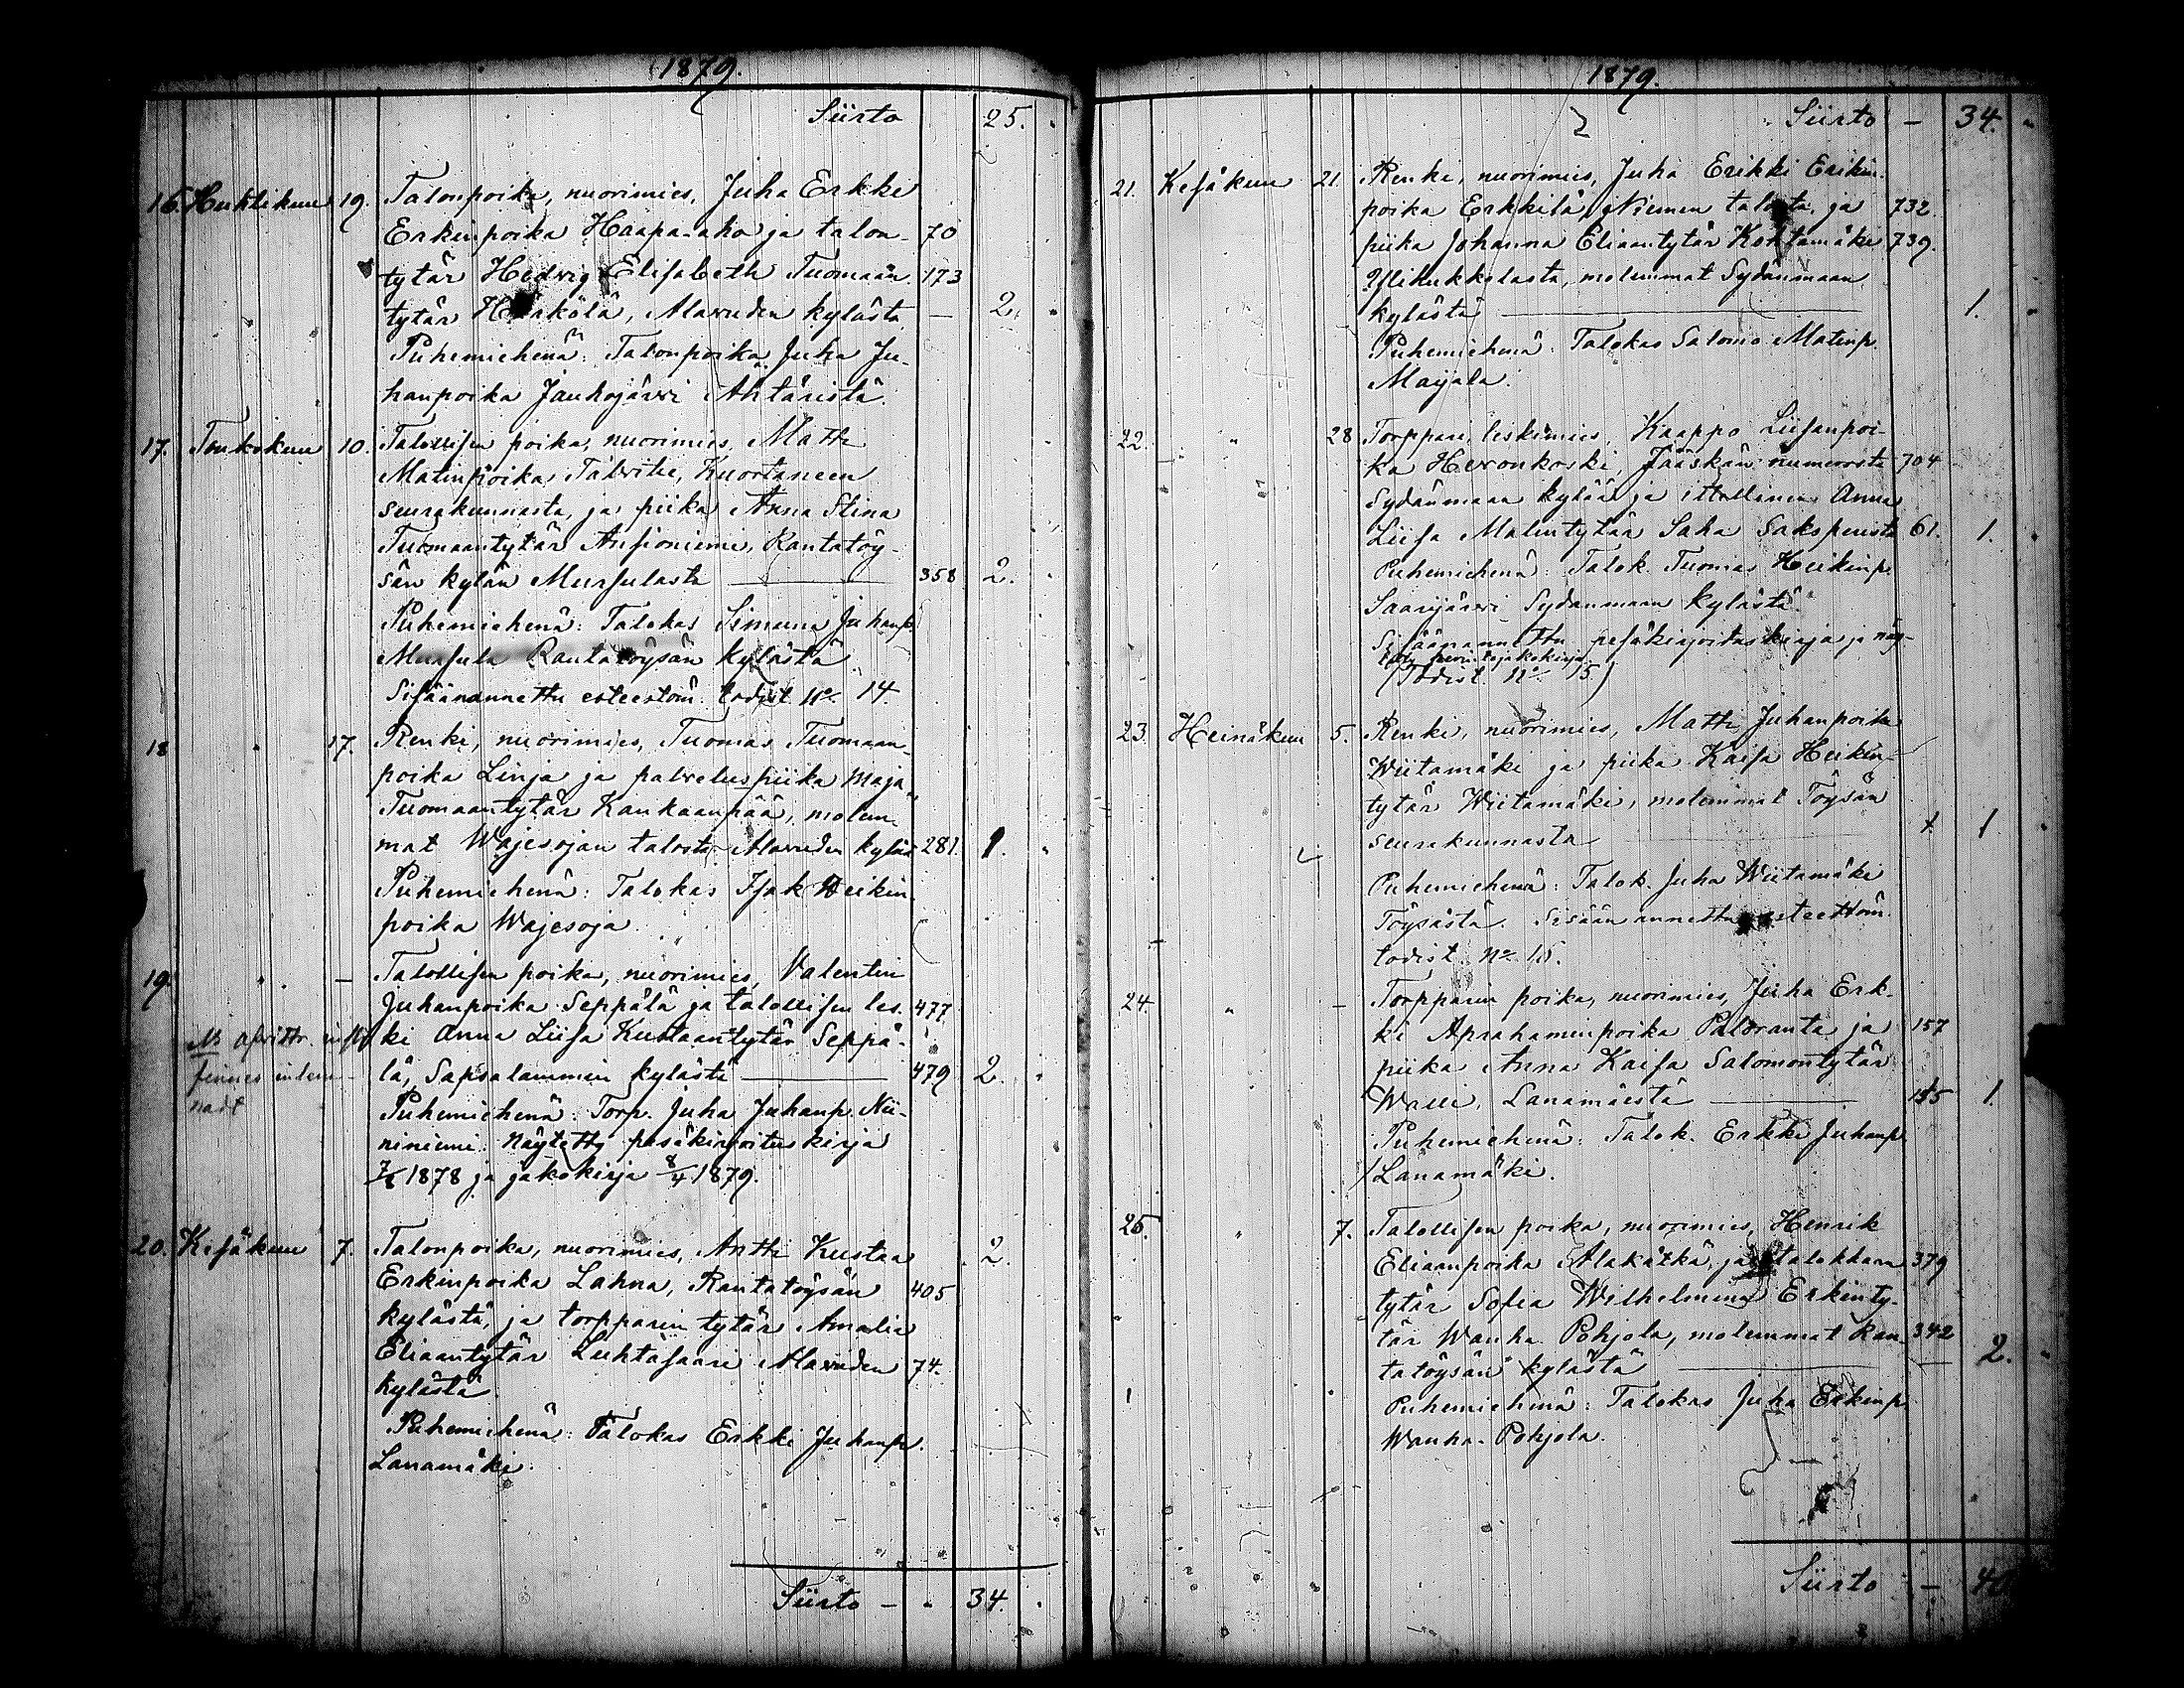 1879.
Siirto 25.
16. Huhtikuu 19. Talonpoika, nuorimies, Juha Erkki
Erkinpoika Haapa-aho ja talon- 70
tytär Hedvig Elisabeth Tuomaan- 173
tytär Härkölä, Alavuden kylästä — 2.
Puhemiehenä: Talonpoika Juha Ju-
hanpoika Jauhojärvi Ähtäristä.
17. Toukokuu 10. Talollisen poika, nuorimies, Matti
Matinpoika, Kuortaneen
seurakunnasta, ja piika Anna Stina
Tuomaantytär Ansioniemi, Rantatöy-
sän kylän Mursulasta — 358 2.
Puhemiehenä: Talokas Simuna Juhanp.
Mursula Rantatöysän kylästä
Sisäänannettu esteettöm. todist. No 14.
18 " 17. Renki, nuorimies, Tuomas Tuomaan-
poika Linja ja palveluspiika Maja
Tuomaantytär Kankaanpää, molem-
mat Wajesojan talosta Alavuden kylää 281. 1.
Puhemiehenä: Talokas Isak Heikin-
poika Wajesoja.
19. " — Talollisen poika, nuorimies, Valentin
Juhanpoika Seppälä ja talollisen les- 477
ki Anna Liisa Kustaantytär Seppä-
lä, Sapsalammin kylästä — 479 2.
Puhemiehenä: Torp. Juha Juhanp. Nii-
niniemi. Näytetty pesäkirjoituskirja
7/8 1878 ja jakokirja 8/4 1879.
20. Kesäkuu 7. Talonpoika, nuorimies, Antti Kustaa 2.
Erkinpoika Lahna, Rantatöysän 405
kylästä, ja torpparin tytär Amalia
Eliaantytär Luhtasaari Alavuden 74.
kylästä
Puhemiehenä: Talokas Erkki Juhanp.
Lanamäki.
Siirto — 34.
1879.
Siirto — 34.
21. Kesäkuu 21. Renki, nuorimies, Juha Erikki Erikin-
poika Erkkilä, Niemen talosta, ja 732.
piika Johanna Eliaantytär Kohtamäki 739.
molemmat Sydänmaan
kylästä — 1.
Puhemiehenä: Talokas Salomo Matinp.
Mayala.
22. " 28 Torppari, leskimies, Kaappo Liisanpoi-
ka Heronkoski, Jääskän numerosta 704
Sydänmaan kylää ja itsellinen Anna
Liisa Matintytär Saha Sakspenistä 61. 1.
Puhemiehenä: Talok. Tuomas Heikinp.
Saarijärvi Sydänmaan kylästä.
Sisäänannettu pesäkirjoituskirja ja näy-
tetty perintöjakokirja
(Todist. No 15)
23. Heinäkuu 5. Renki, nuorimies, Matti Juhanpoika
Wiitamäki ja piika Kaisa Heikin-
tytär Wiitamäki, molemmat Töysän
seurakunnasta 1
Puhemiehenä: Talok. Juha Wiitamäki
Töysästä. Sisäänannettu esteettöm.
todist. No 16.
24. " — Torpparin poika, nuorimies, Juha Erk-
ki Aprahaminpoika Paloranta ja 157
piika Anna Kaisa Salomontytär
Walli, Lanamäestä — 1.
Puhemiehenä: Talok. Erkki Juhanp.
Lanamäki.
25. " 7. Talollisen poika, nuorimies, Henrik
Eliaanpoika Alakätkä, ja talokkaan 379
tytär Sofia Wilhelmina Erkinty-
tär Wanha Pohjola, molemmat Ran- 342
tatöysän kylästä — 2.
Puhemiehenä: Talokas Juha Erkinp.
Wanha-Pohjola.
Siirto — 40